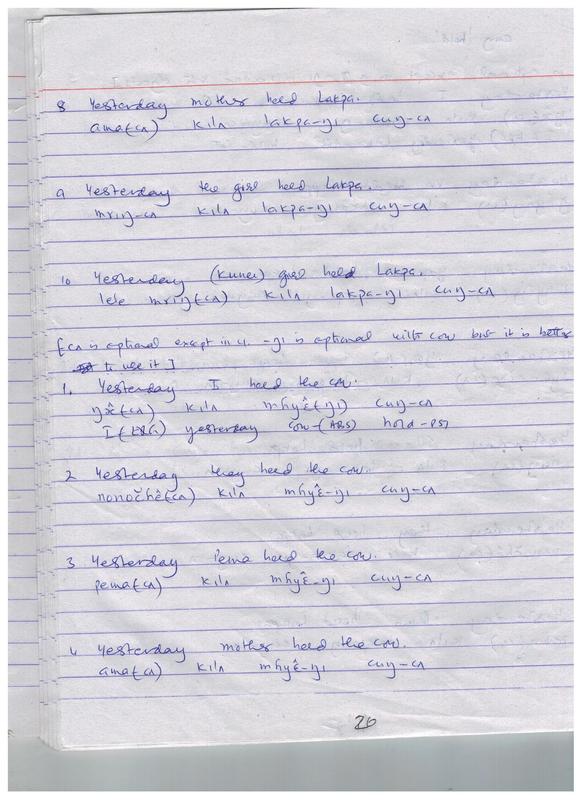 8 Yesterday mother held Lakpa.
ama(cʌ) kilʌ lakpa-ŋɪ cuŋ-cʌ
9 Yesterday the girl held Lakpa.
mriŋ-cʌ kilʌ lakpa-ŋɪ cuŋ-cʌ
10 Yesterday (Kuner) girl held Lakpa.
lese mriŋ(cʌ) kilʌ lakpa-ŋɪ cuŋ-cʌ
[cʌ is optional except in 4. -ŋɪ is optional with cow but it is better
to use it]
1. Yesterday I held the cow.
kilʌ mhyɛ̂(ŋɪ) cuŋ-cʌ
I(ERG) yesterday cow-(ABS) hold-PST
2 Yesterday they held the cow.
nonočhê(cʌ) kilʌ mhyɛ̂-ŋɪ cuŋ-cʌ
3 Yesterday Pema held the cow.
pema(cʌ) kilʌ mhyɛ̂-ŋɪ cuŋ-cʌ
4 Yesterday mother held the cow.
ama(cʌ) kilʌ mhyɛ̂-ŋɪ cuŋ-cʌ
26